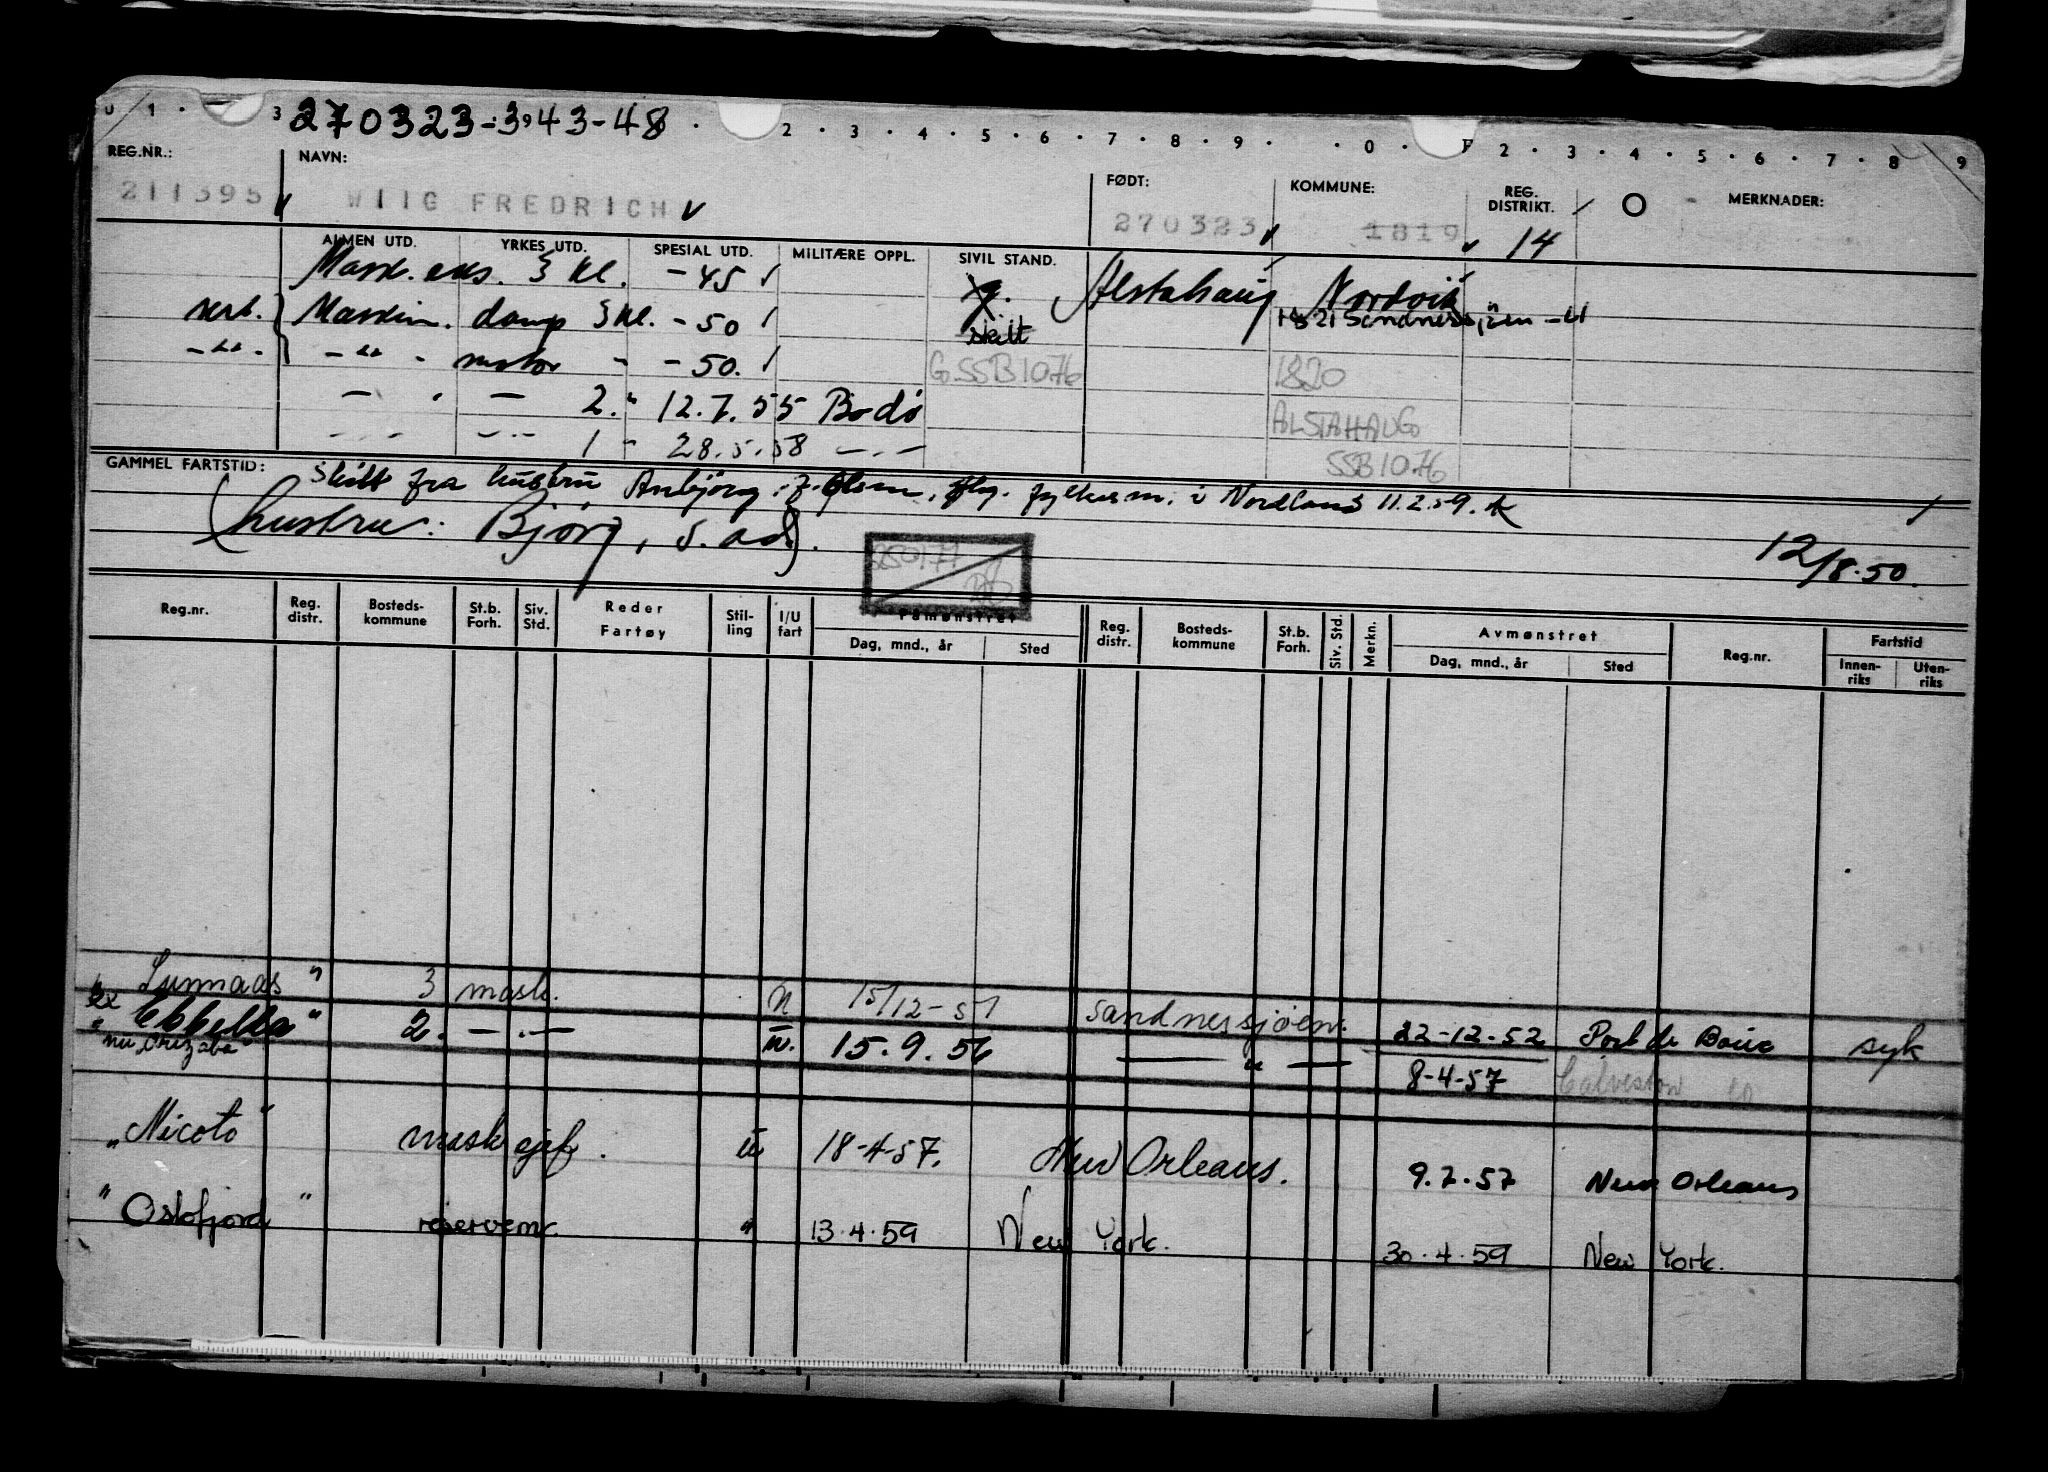 0 1 · 3 270323-3943-48 · 2 · 3 · 4 · 5 · 6 · 7 · 8 · 9 · · 0 · F 2 · 3 · 4 · 5 · 6 · 7 · 8 9
REG.NR.: NAVN: FØDT: KOMMUNE: REG. DISTRIKT. O MERKNADER:
211395 WIIG FREDRICH 270323 1819 14
ALMEN UTD. YRKES UTD. SPESIAL UTD. MILITÆRE OPPL. SIVIL STAND.
Mask. eks. 3 kl. -45 g. Alstahaug Nordvik
sert. Maskin. damp 3 kl. -50 skilt 1821 Sandnessjøen
-"- . -"- . motor " -50. G.SSB1076 1820
— . — 2. " 12.7.55 Bodø ALSTAHAUG
- . - - . - 1 " 28.5.58 — . — SSB1076
GAMMEL FARTSTID: skilt fra hustru Anbjørg . Olsen, flg. fylkesm. i Nordland 11.2.59.
(hustru: Bjørg, s. ad).
12/8.50.
250177
Reg.nr. Reg. distr. Bosteds- kommune St.b. Forh. Siv. Std. Reder Fartøy Stil- ling I/U fart Påmønstret Dag, mnd., år Sted Reg. distr. Bosteds- kommune St.b. Forh. Siv. Std. Merkn. Avmønstret Dag, mnd., år Sted Reg.nr. Fartstid Innen- riks Uten- riks
Lumaas " 3 mask. u 15/12-51 Sandnessjøen. 22-12-52 Port de Bouc syk
ex " " 2. — . — u. 15.9.56 — " — 8-4-57 Galveston
nu "Orizaba"
"Nicoto" mask sjef. u 18-4-57. New Orleans. 9.7.57 New Orleans
"Oslofjord" reservem. " 13.4.59 New York. 30.4.59 New York.